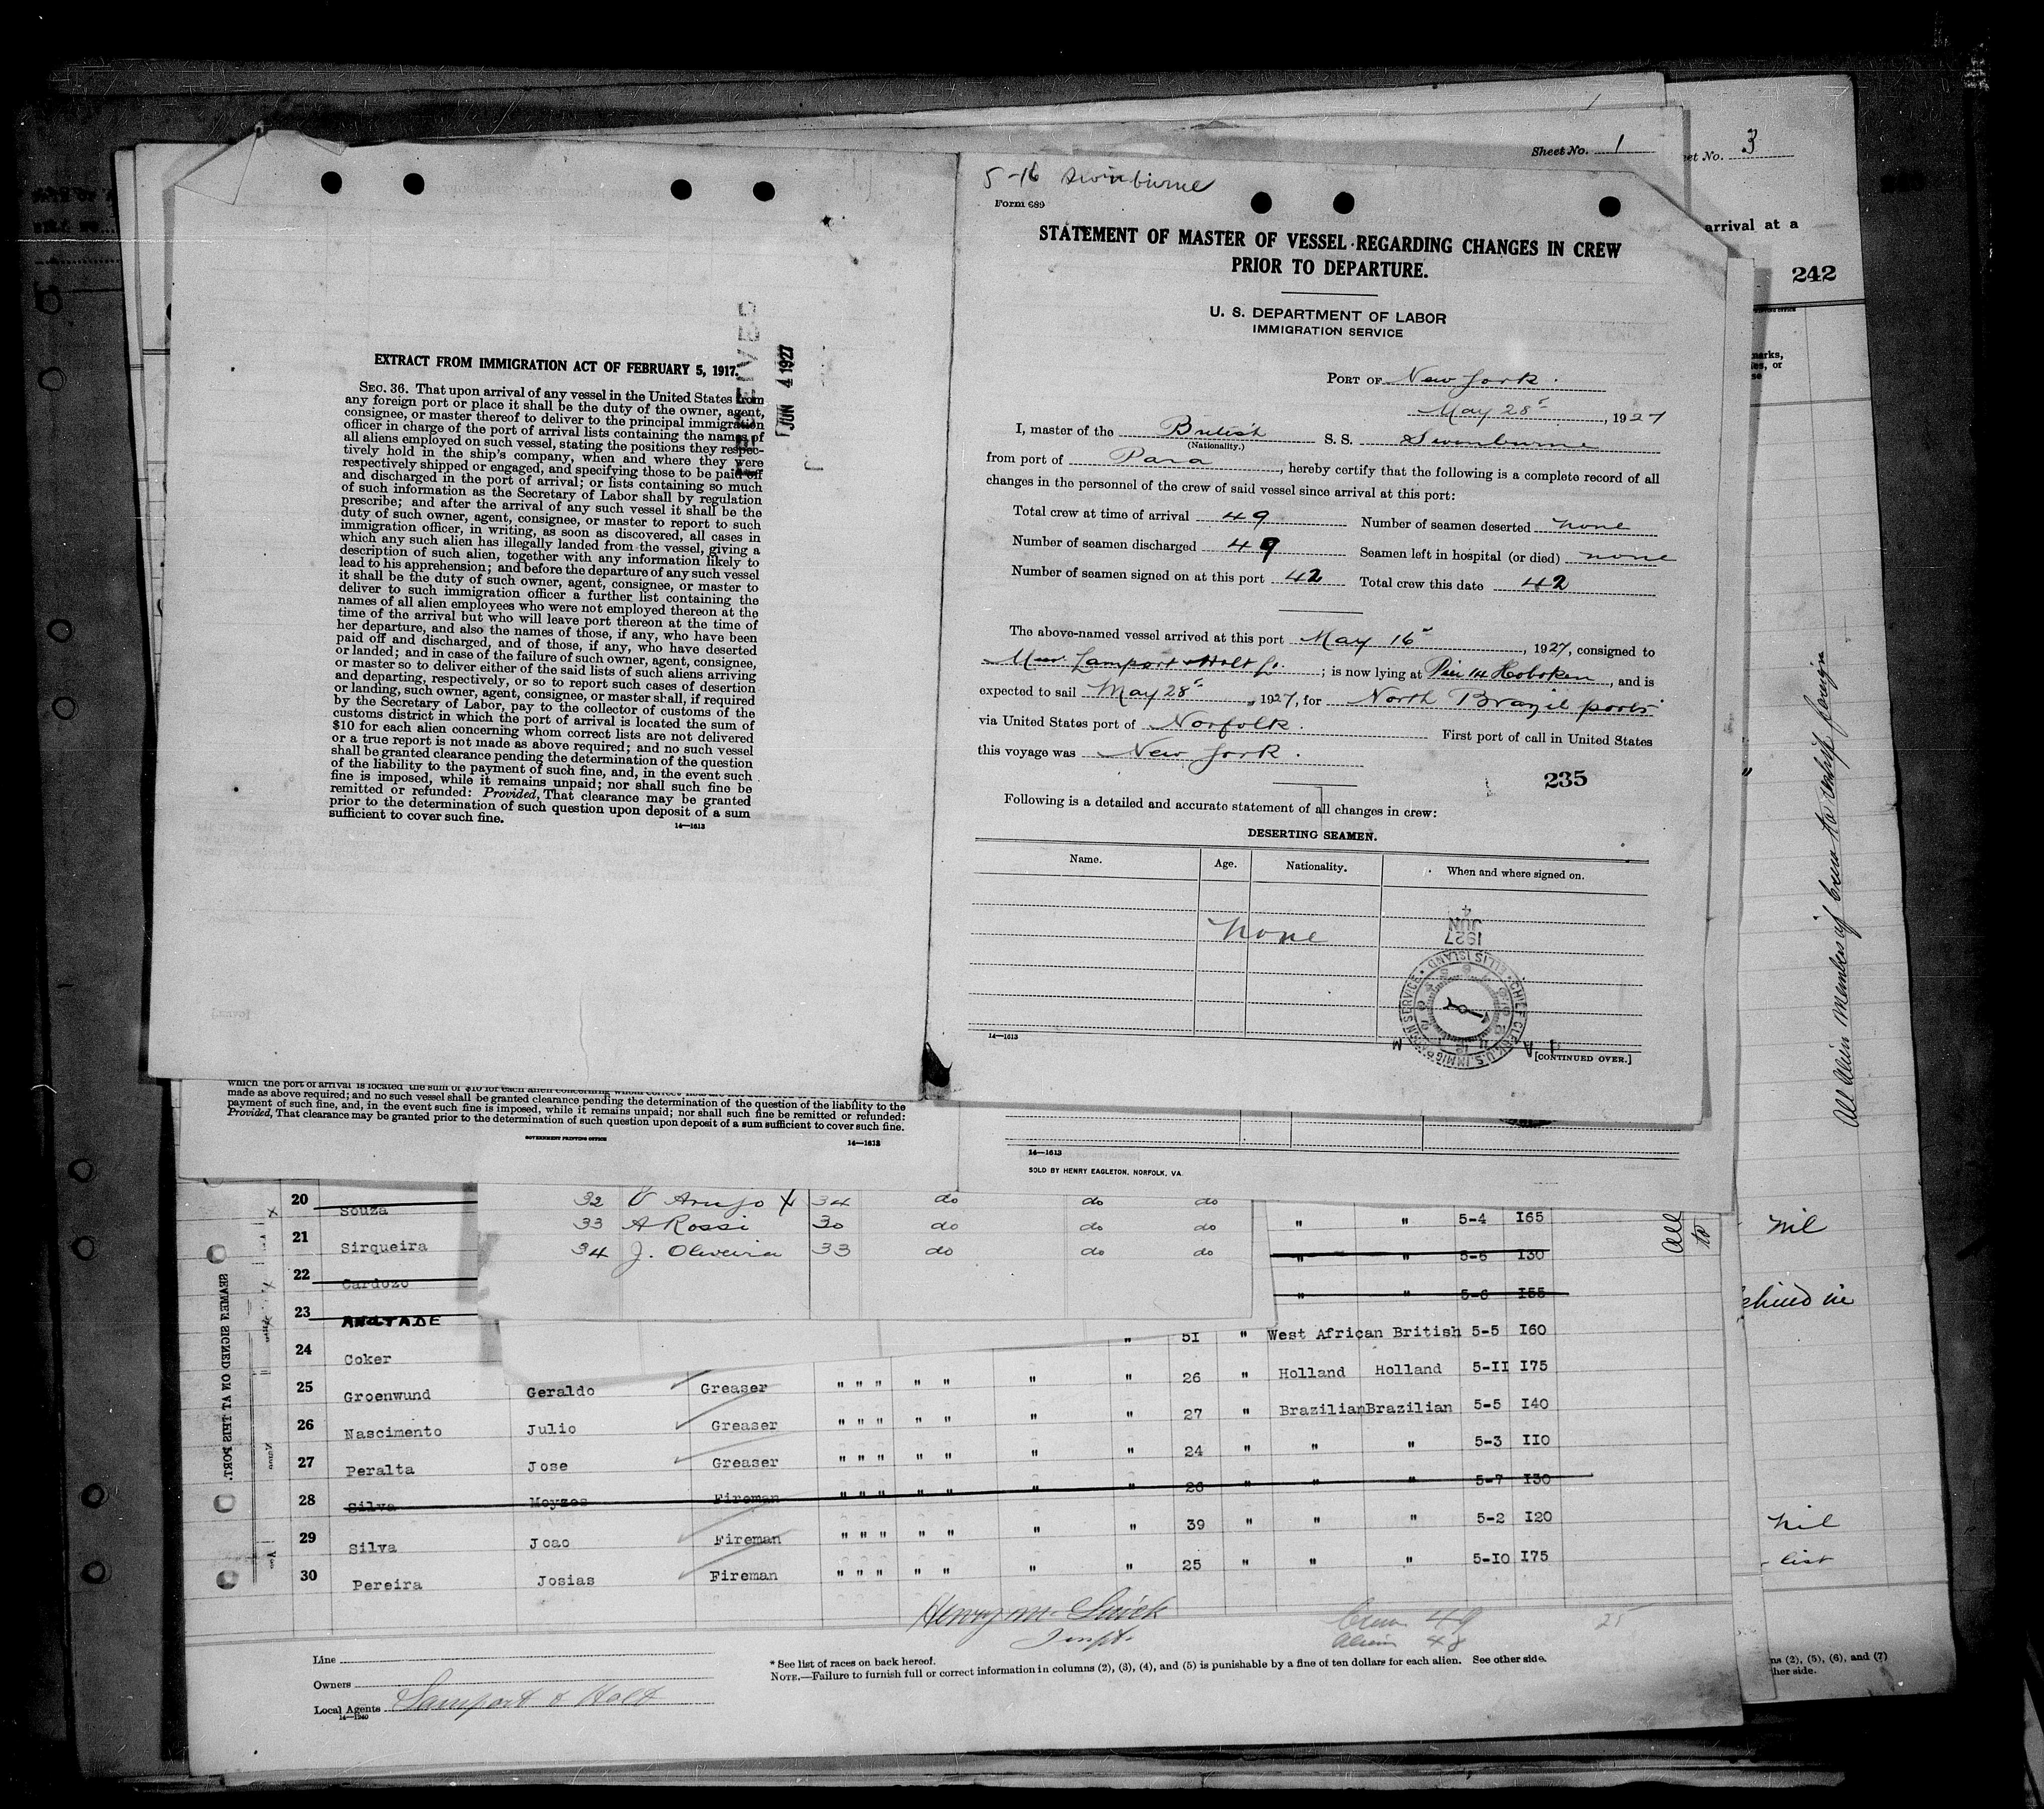 Sheet No. 1
Sheet No. 3
arrival at a
242
5-16 Swinburne
Form 689
STATEMENT OF MASTER OF VESSEL REGARDING CHANGES IN CREW
PRIOR TO DEPARTURE.
U. S. DEPARTMENT OF LABOR
IMMIGRATION SERVICE
PORT OF New York.
May 28, 1927
I, master of the British S. S. Swinburne
(Nationality.)
from port of Para, hereby certify that the following is a complete record of all
changes in the personnel of the crew of said vessel since arrival at this port:
Total crew at time of arrival 49 Number of seamen deserted none
Number of seamen discharged 49 Seamen left in hospital (or died) none
Number of seamen signed on at this port 42 Total crew this date 42
The above-named vessel arrived at this port May 16, 1927, consigned to
Lamport & Holt ; is now lying at Pier 14 Hoboken, and is
expected to sail May 28, 1927, for North Brazil ports
via United States port of Norfolk. First port of call in United States
this voyage was New York.
235
Following is a detailed and accurate statement of all changes in crew:
DESERTING SEAMEN.
Name. Age. Nationality. When and where signed on.
None
1927 JUN 4
CHIEF CLERK, U.S. IMMIGRATION SERVICE ELLIS ISLAND
14-1613
[CONTINUED OVER.]
RECEIVED
JUN 4 1927
EXTRACT FROM IMMIGRATION ACT OF FEBRUARY 5, 1917.
SEC. 36. That upon arrival of any vessel in the United States from
any foreign port or place it shall be the duty of the owner, agent,
consignee, or master thereof to deliver to the principal immigration
officer in charge of the port of arrival lists containing the names of
all aliens employed on such vessel, stating the positions they respec-
tively hold in the ship's company, when and where they were
respectively shipped or engaged, and specifying those to be paid off
and discharged in the port of arrival; or lists containing so much
of such information as the Secretary of Labor shall by regulation
prescribe; and after the arrival of any such vessel it shall be the
duty of such owner, agent, consignee, or master to report to such
immigration officer, in writing, as soon as discovered, all cases in
which any such alien has illegally landed from the vessel, giving a
description of such alien, together with any information likely to
lead to his apprehension; and before the departure of any such vessel
it shall be the duty of such owner, agent, consignee, or master to
deliver to such immigration officer a further list containing the
names of all alien employees who were not employed thereon at the
time of the arrival but who will leave port thereon at the time of
her departure, and also the names of those, if any, who have been
paid off and discharged, and of those, if any, who have deserted
or landed; and in case of the failure of such owner, agent, consignee,
or master so to deliver either of the said lists of such aliens arriving
and departing, respectively, or so to report such cases of desertion
or landing, such owner, agent, consignee, or master shall, if required
by the Secretary of Labor, pay to the collector of customs of the
customs district in which the port of arrival is located the sum of
$10 for each alien concerning whom correct lists are not delivered
or a true report is not made as above required; and no such vessel
shall be granted clearance pending the determination of the question
of the liability to the payment of such fine, and, in the event such
fine is imposed, while it remains unpaid; nor shall such fine be
remitted or refunded: Provided, That clearance may be granted
prior to the determination of such question upon deposit of a sum
sufficient to cover such fine.
14-1613
which the port of arrival is located the sum of $10 for each alien concerning whom
made as above required; and no such vessel shall be granted clearance pending the determination of the question of the liability to the
payment of such fine, and, in the event such fine is imposed, while it remains unpaid; nor shall such fine be remitted or refunded:
Provided, That clearance may be granted prior to the determination of such question upon deposit of a sum sufficient to cover such fine.
GOVERNMENT PRINTING OFFICE
14-1613
14-1613
SOLD BY HENRY EAGLETON, NORFOLK, VA.
All Alien members of crew to reship foreign
32 Araujo X 34 do do do
33 A Rossi 30 do do do
34 J. Oliveira 33 do do do
SEAMEN SIGNED ON AT THIS PORT.
20 Souza
21 Sirqueira " " 5-4 I65
22 Cardozo " " 5-6 I30
23 ANDTADE " " 5-6 I55
24 Coker " 51 " West African British 5-5 I60
25 Groenwund Geraldo Greaser " " " " " " " 26 " Holland Holland 5-II I75
26 Nascimento Julio Greaser " " " " " " " 27 " Brazilian Brazilian 5-5 I40
27 Peralta Jose Greaser " " " " " " " 24 " " " 5-3 IIO
28 Silva Moyzes Fireman " " " " " " " 26 " " " 5-7 I30
29 Silva Joao Fireman " " " " " " " 39 " " " 5-2 I20
30 Pereira Josias Fireman " " " " " " " 25 " " " 5-IO I75
All
to
nil
behind in
nil
list
Inspt.
Crew 49
Alien 48
25
Line
Owners
Local Agents Lamport & Holt
14-1240
* See list of races on back hereof.
NOTE.—Failure to furnish full or correct information in columns (2), (3), (4), and (5) is punishable by a fine of ten dollars for each alien. See other side.
ns (2), (5), (6), and (7)
ther side.